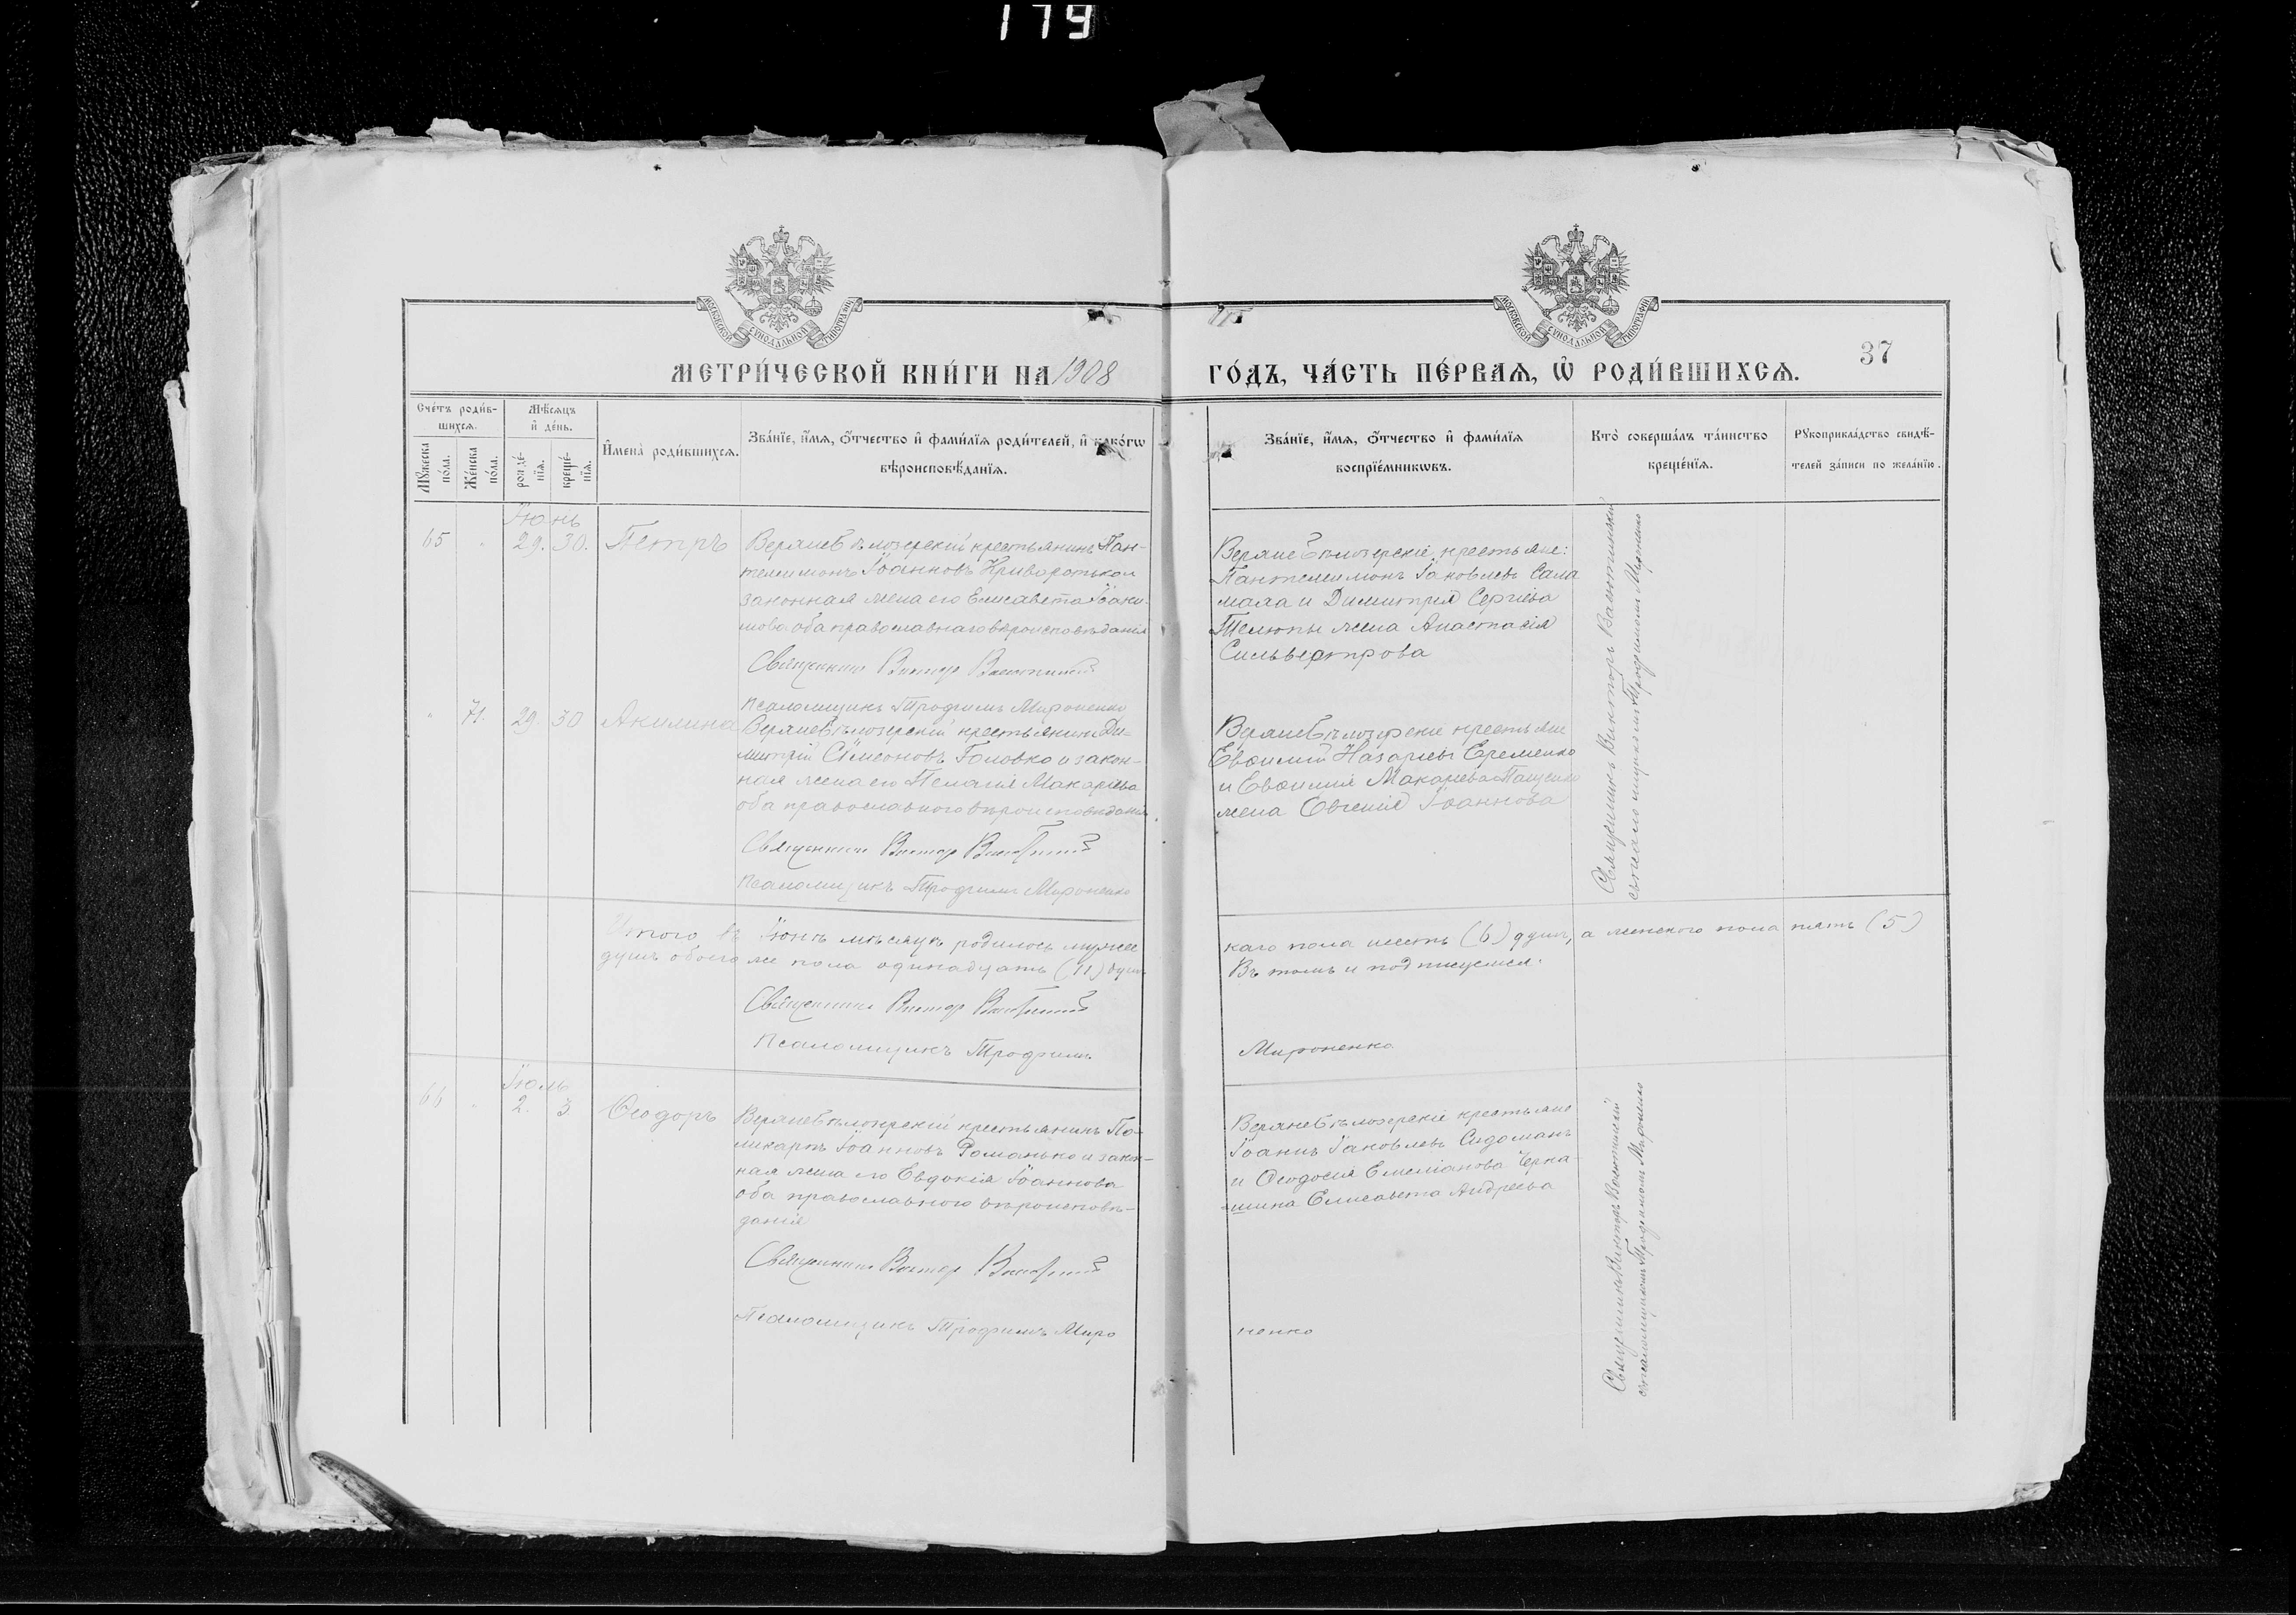 179
МОСКОВСКОЙ СѴНОДАЛЬНОЙ ТИПОГРАФІИ
МОСКОВСКОЙ СѴНОДАЛЬНОЙ ТИПОГРАФІИ
МЕТРИ́ЧЕСКОЙ КНИ́ГИ НА 1908 ГО́ДЪ, ЧА́СТЬ ПЕ́РВАѦ, Ѡ҆ РОДИ́ВШИХСѦ.
37
Сче́тъ роди́в-
шихсѧ.
Мѣ́сѧцъ
и҆ де́нь.
Мꙋ́жеска
по́ла.
Же́нска
по́ла.
рожде́-
нїѧ.
креще́-
нїѧ.
И҆мена̀ роди́вшихсѧ.
Зва́нїе, и҆́мѧ, ѻ҆́тчество и҆ фами́лїѧ роди́телей, и҆ како́гѡ
вѣроисповѣ́данїѧ.
Зва́нїе, и҆́мѧ, ѻ҆́тчество и҆ фами́лїѧ
воспрїе́мникѡвъ.
Кто̀ соверша́лъ та́инство
креще́нїѧ.
Рꙋкоприкла́дство свидѣ́-
телей за́писи по жела́нїю.
Іюнь
65 " 29. 30. Петръ
Верхнебѣлозерскій крестьянинъ Пан-
телеимонъ Іоанновъ Криворотько и
законная жена его Елисавета Іоаки-
мова оба православнаго вѣроисповѣданія
Священникъ Викторъ
Псаломщикъ Трофимъ Мироненко
Верхнебѣлозерскіе крестьяне:
Пантелеимонъ Іаковлевъ Сала
маха и Димитрія Сергіева
Телюпы жена Анастасія
Сильвестрова
Священникъ Викторъ
съ псаломщикомъ Трофимомъ Мироненко
" 71. 29. 30 Акилина
Верхнебѣлозерскій крестьянинъ Ди-
митрій Сѵмеоновъ Головко и закон-
ная жена его Пелагія Макаріева
оба православного вѣроисповѣданія
Священникъ Викторъ
Псаломщикъ Трофимъ Мироненко
Верхнебѣлозерскіе крестьяне
Евѳимій Назаріевъ Еременко
и Евѳимія Макаріева Пащенко
жена Евгенія Іоаннова
Итого въ Іюнѣ мѣсяцѣ родилось мужес
каго пола шесть (6) душъ, а женского пола пять (5)
душъ обоего же пола одинадцать (11) душъ
Въ томъ и подписуемся:
Священникъ Викторъ
Псаломщикъ Трофимъ
Мироненко
Іюль
66 " 2. 3 Ѳеодоръ
Верхнебѣлозерскій крестьянинъ По-
ликарпъ Іоанновъ Романько и закон-
ная жена его Евдокія Іоаннова
оба православного вѣроисповѣ-
данія
Священникъ Викторъ
Псаломщикъ Трофимъ Миро
ненко
Верхнебѣлозерскіе крестьяне
Іоаннъ Іаковлевъ Сидоманъ
и Ѳеодосія Емеліанова Черка-
шина Елисавета Андреева
Священникъ Викторъ
съ псаломщикомъ Трофимомъ Мироненко